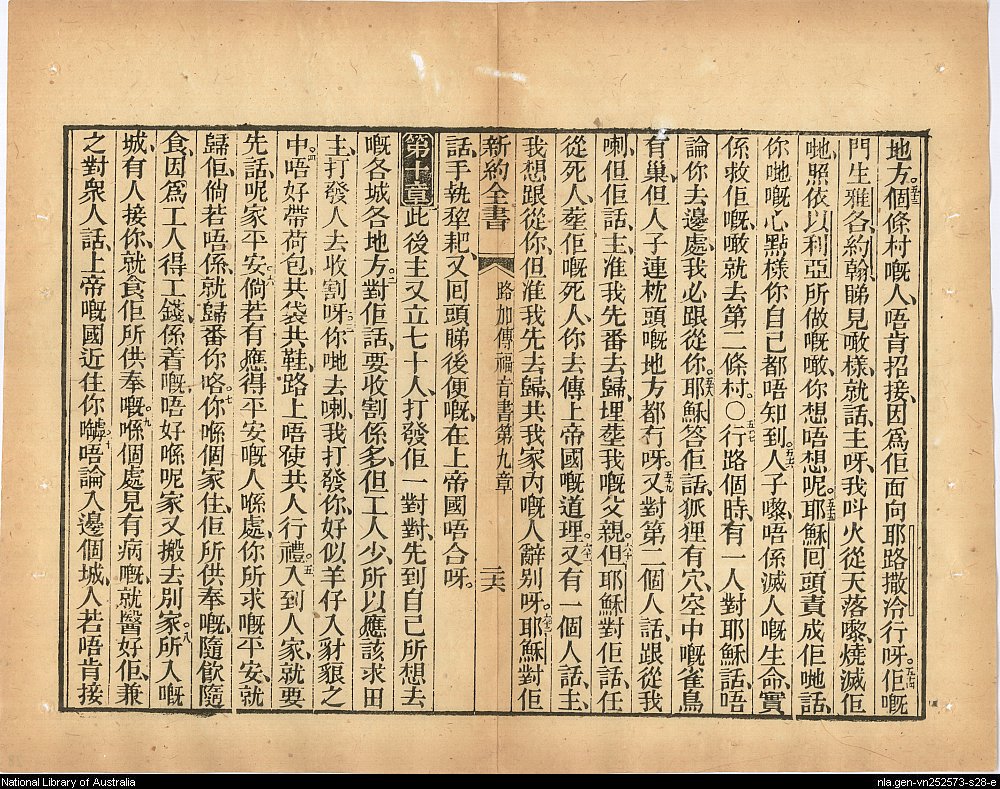 地方。五十三個條村嘅人、唔肯招接、因爲佢面向耶路撒冷行呀。五十四佢嘅
門生雅各約翰、睇見噉樣、就話、主呀、我呌火從天落嚟、燒滅佢
哋、照依以利亞所做嘅噉、你想唔想呢。五十五耶穌回頭責成佢哋話、
你哋嘅心點樣、你自己都唔知到。五十六人子嚟、唔係滅人嘅生命、實
係救佢嘅、噉就去第二條村。〇五十七行路個時、有一人對耶穌話、唔
論你去邊處、我必跟從你。五十八耶穌答佢話、狐狸有穴、空中嘅雀鳥
有巢、但人子連枕頭嘅地方都冇呀。五十九又對第二個人話、跟從我
喇、但佢話、主、准我先番去歸、埋塟我嘅父親。六十但耶穌對佢話、任
從死人、塟佢嘅死人、你去傳上帝國嘅道理。六十一又有一個人話、主、
我想跟從你、但准我先去歸、共我家內嘅人辭别呀。六十二耶穌對佢
新約全書 路加傳福音書第九章 二六
話、手執犂耙、又回頭睇後便嘅、在上帝國唔合呀。
第十章 此後主又立七十人、打發佢一對對、先到自己所想去
嘅各城各地方。二對佢話、要收割係多、但工人少、所以應該求田
主、打發人去收割呀。三你哋去喇、我打發你、好似羊仔入豺狼之
中。四唔好帶荷包、共袋、共鞋、路上唔使共人行禮。五入到人家、就要
先話、呢家平安。六倘若有應得平安嘅人喺處、你所求嘅平安、就
歸佢、倘若唔係、就歸番你咯。七你喺個家住、佢所供奉嘅、隨飲隨
食、因爲工人得工錢、係着嘅、唔好喺呢家又搬去別家。八所入嘅
城、有人接你、就食佢所供奉嘅。九喺個處見有病嘅、就醫好佢、兼
之對衆人話、上帝嘅國近住你嚹。十唔論入邊個城、人若唔肯接
National Library of Australia
nla.gen-vn252573-s28-e